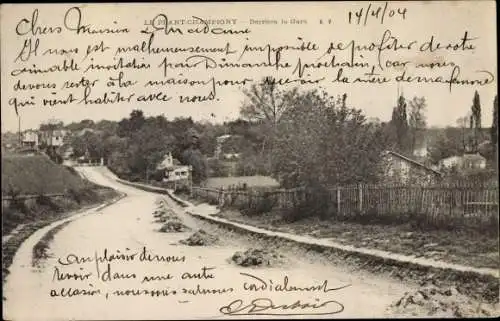 LE PLANT-CHAMPIGNY — Derrière la Gare E V
14/4/04
Chers Monsieur & Madame
Il nous est malheureusement impossible de profiter de votre
aimable invitation pour Dimanche prochain, car nous
devons rester à la maison pour recevoir la mère de ma femme
qui vient habiter avec nous.
Au plaisir de vous
revoir dans une autre
occasion, nous vous saluons cordialement